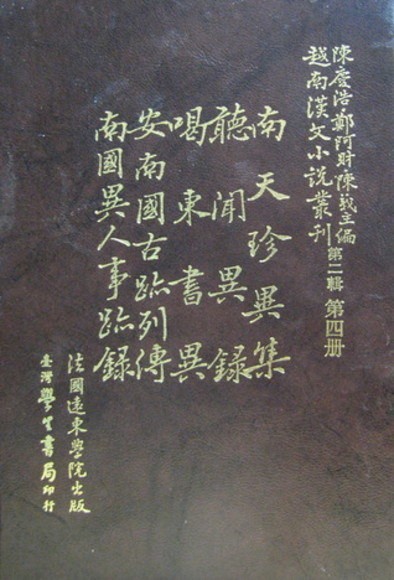 陳慶浩·鄭阿財·陳義主編
越南漢文小說叢刊 第二輯 第四冊
南天珍異集
聽聞異錄
喝東書異
安南國古跡列傳
南國異人事跡錄
法國遠東學院出版
臺灣學生書局印行